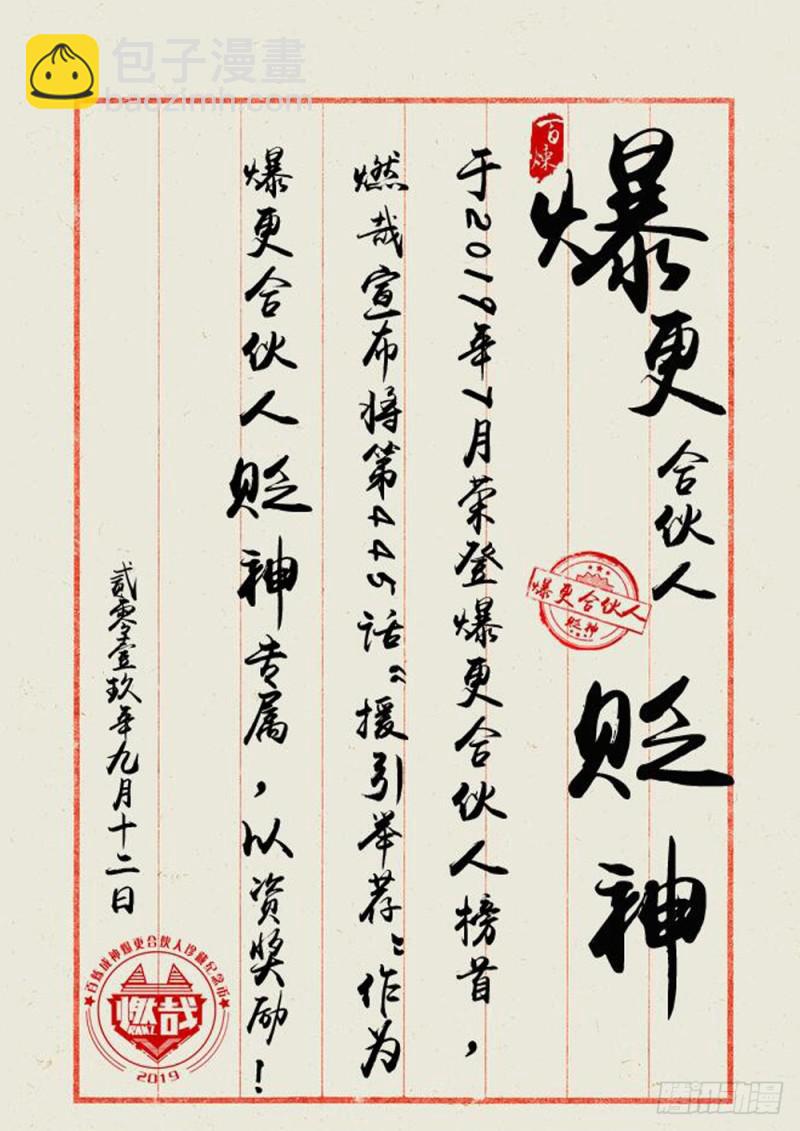 包子漫畫
baozimh.com
百煉
爆更合伙人 贬神
爆更合伙人
贬神
于2019年7月荣登爆更合伙人榜首，
燃哉宣布将第445话“援引举荐”作为
爆更合伙人贬神专属，以资奖励！
贰零壹玖年九月十二日
百炼成神爆更合伙人珍藏纪念币
燃哉
RANZ
2019
腾讯动漫